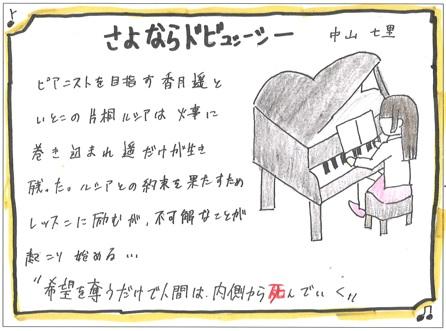 さよならドビュッシー
中山 七里
ピアニストを目指す香月遥と
いとこの片桐ルシアは火事に
巻き込まれ遥だけが生き
残った。ルシアとの約束を果たすため
レッスンに励むが、不可解なことが
起こり始める…
"希望を奪うだけで人間は、内側から死んでいく"